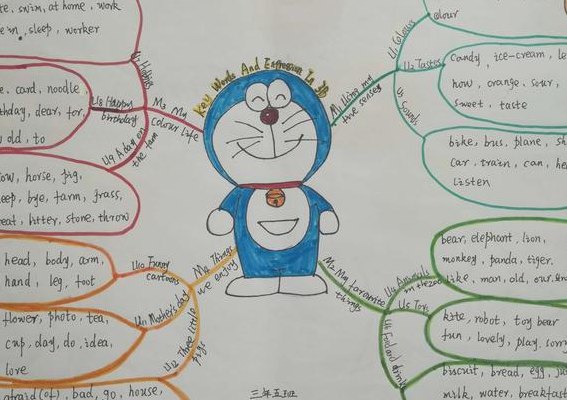 Key Words And Expression In 3B
M1 Using my
five senses
U1 Colours
colour
U2 Tastes
Candy, ice-cream, le
how, orange, sour,
sweet, taste
U3 Sounds
bike, bus, plane, sh
car, train, can, hea
listen
M2 My favourite
things
U4 Animals
in the zoo
bear, elephant, lion,
monkey, panda, tiger,
like, man, old, our
U5 Toys
kite, robot, toy bear
fun, lovely, play, sorry
U6 Food and drinks
biscuit, bread, egg, ju
milk, water, breakfast
M3 My
colour life
U7 Hobbies
swim, at home, work
in, sleep, worker
U8 Happy
birthday
e, card, noodle,
thday, dear, for,
old, to
U9 A day on
the farm
ow, horse, pig,
eep, bye, farm, grass,
eat, litter, stone, throw
M4 Things
we enjoy
U10 Funny
cartoons
head, body, arm,
hand, leg, foot
U11 Mother's day
flower, photo, tea,
cup, day, do, idea,
love
U12 Three little
pigs
afraid(of), bad, go, house,
三年五班